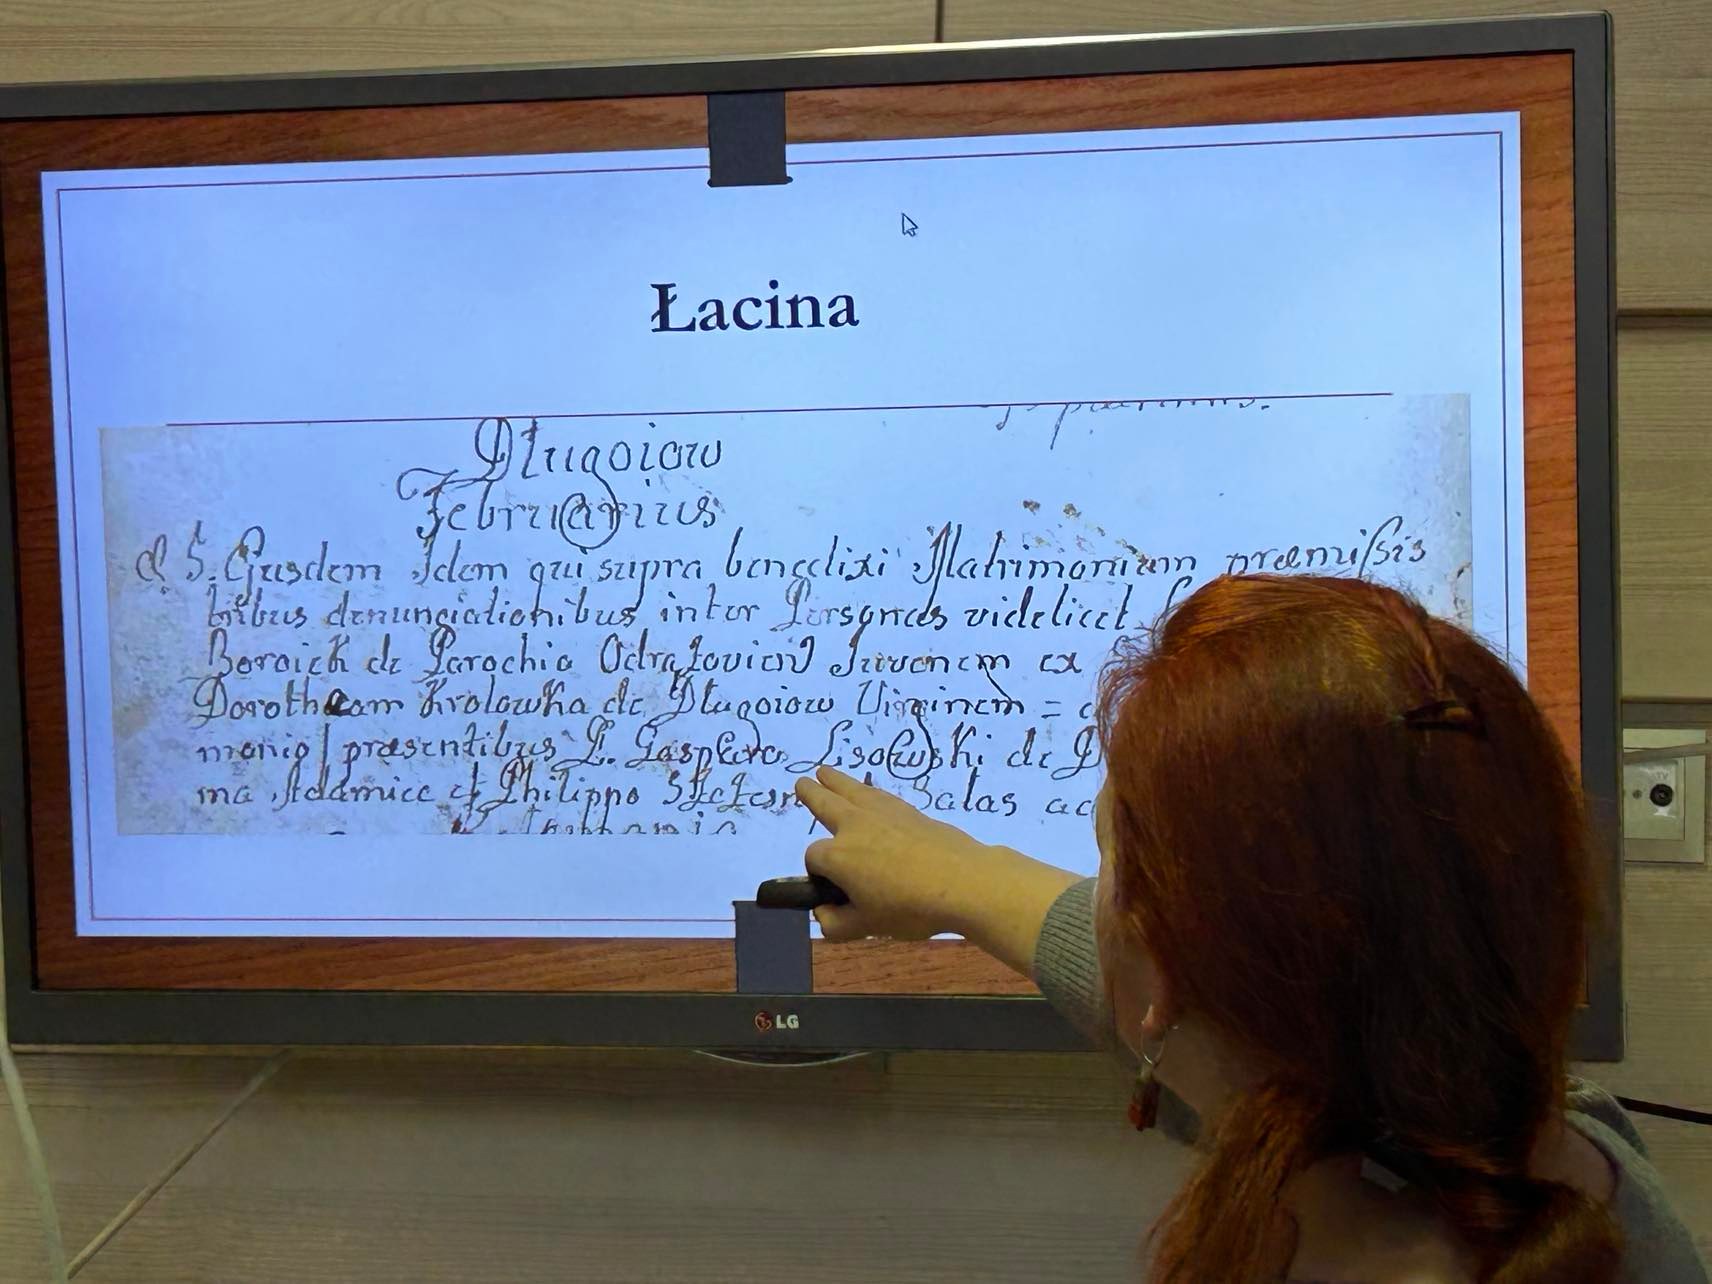 Łacina
Długoiow
Februarius
d 5. Ejusdem Idem qui supra benedixi Matrimonium præmißis
tribus denunciationibus inter Personas videlicet
Boroick de Parochia Odrążoviensi Juvenem ex
Dorotheam Krolowka de Długoiow Virginem =
monio præsentibus G. Gasparo Lisowski de D
ma Adamiec et Philippo Salas ac
LG